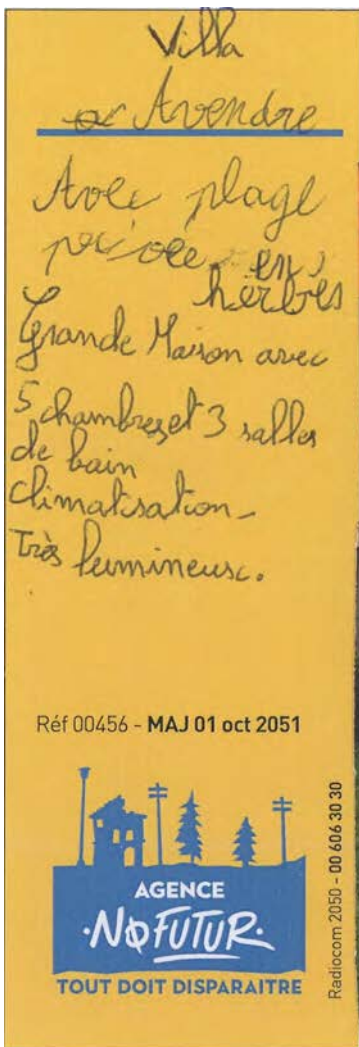 Villa
Avendre
Avec plage
privée en
herbes
Grande Maison avec
5 chambres et 3 salles
de bain
climatisation -
Très lumineuse.
Réf 00456 - MAJ 01 oct 2051
AGENCE
·NOFUTUR·
TOUT DOIT DISPARAITRE
Radiocom 2050 - 00 606 30 30